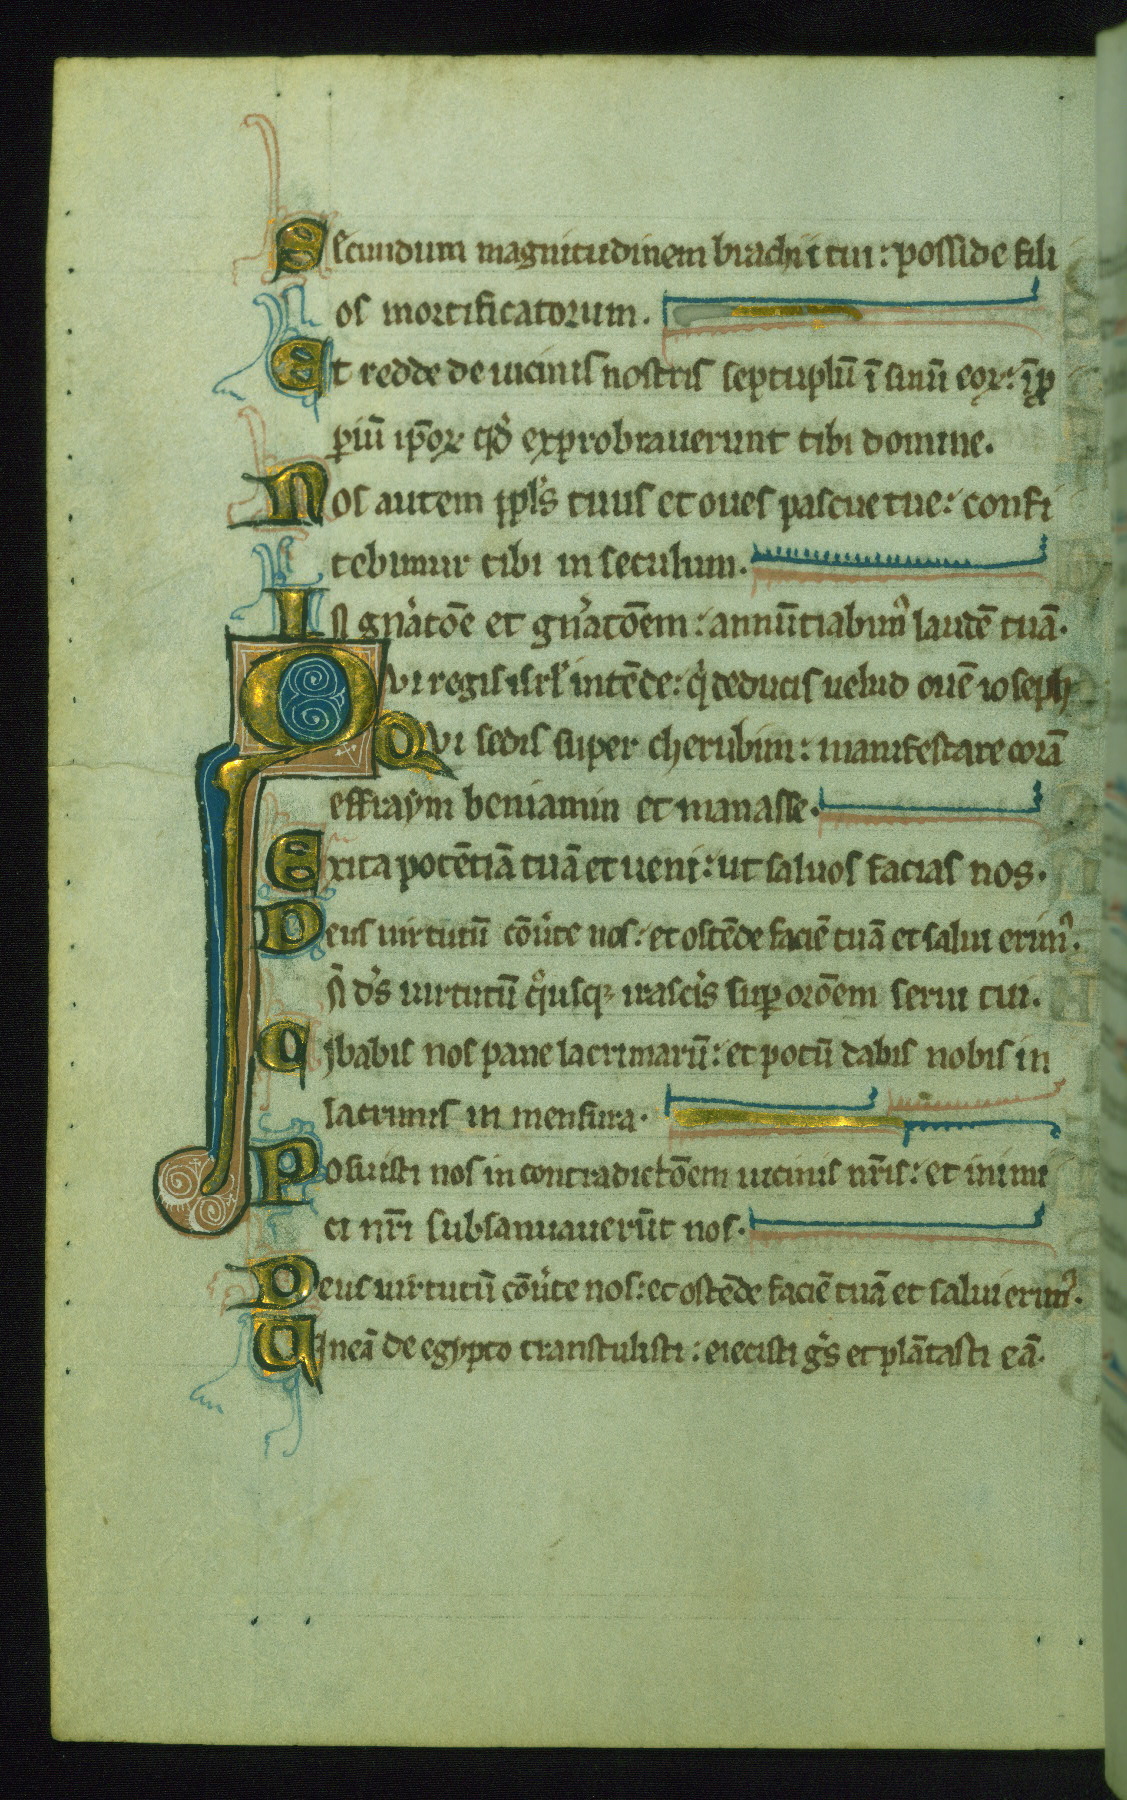 Secundum magnitudinem brachii tui: posside fili
os mortificatorum.
Et redde de uicinis nostris septuplū ī sinū eoꝝ: īp̄
ꝑiū ip̄oꝝ qd̓ exprobrauerunt tibi domine.
Nos autem ppl̓s tuus et oues pascue tue: confi
tebimur tibi in seculum.
In gn̓atōe et gn̓atōem: annūtiabim᷒ laudē tuā.
Qvi regis isrl̓ intēde: q̓ deducis uelud ouē ioseph
Qvi sedis super cherubim: manifestare corā
effraym beniamin et manasse.
Exita potētiā tuā et ueni: ut saluos facias nos.
Deus uirtutū cōu̓te nos: et ostēde faciē tuā et salui erim᷒.
Dn̄e d̓s uirtutū q̊usqꝫ irascis̓ suꝑ orōem serui tui.
Cjbabis nos pane lacrimarū: et potū dabis nobis in
lacrimis in mensura.
Posuisti nos in contradictōem uicinis nr̄is: et inimi
ci nr̄i subsannauerūt nos.
Deus uirtutū cōu̓te nos: et ostēde faciē tuā et salui erim᷒.
Uineā de egypto transtulisti: eiecisti gēs et plātasti eā.